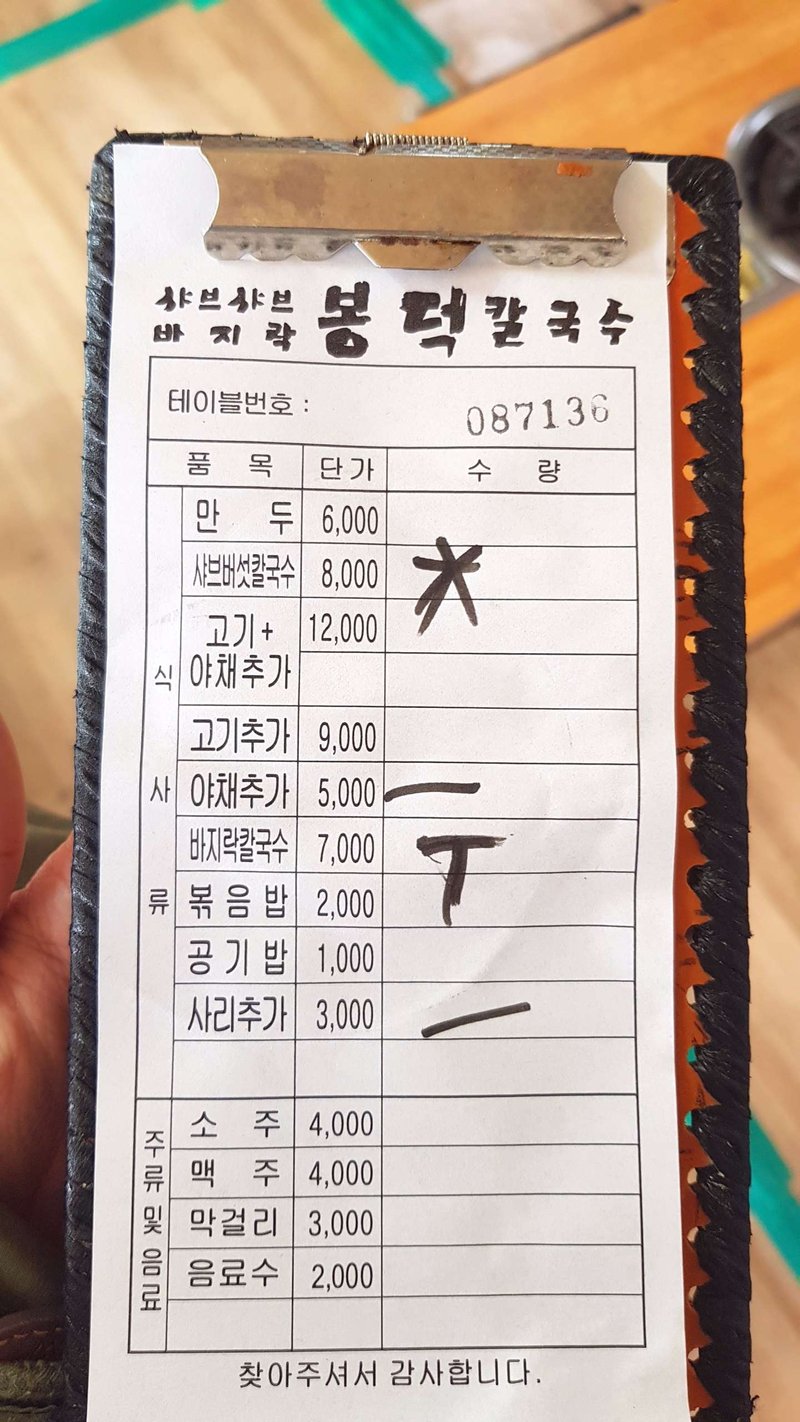 샤브샤브 바지락 봉덕칼국수
테이블번호 : 087136
품 목 단가 수 량
식사류
만 두 6,000
샤브버섯칼국수 8,000
고기+야채추가 12,000
고기추가 9,000
야채추가 5,000 一
바지락칼국수 7,000 T
볶음밥 2,000
공기밥 1,000
사리추가 3,000 一
주류 및 음료
소 주 4,000
맥 주 4,000
막걸리 3,000
음료수 2,000
찾아주셔서 감사합니다.